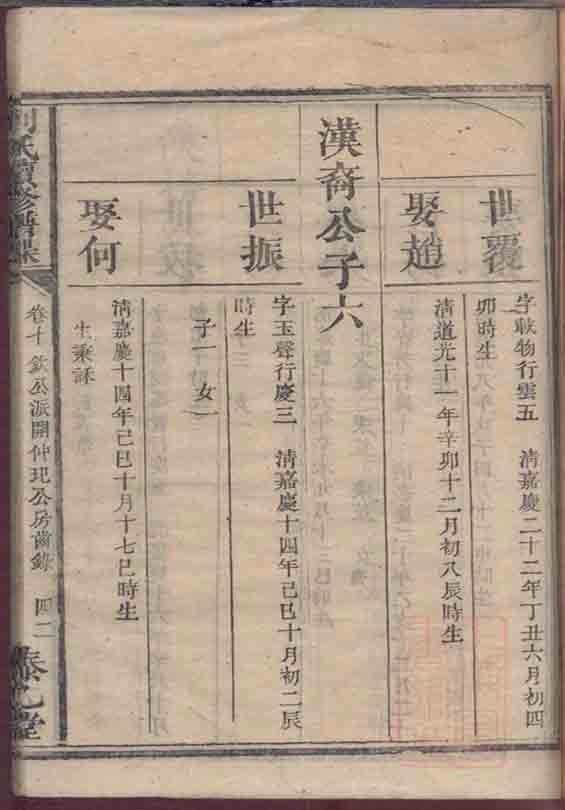 世覆
字載物行雲五　清嘉慶二十二年丁丑六月初四
卯時生
娶趙
清道光十一年辛卯十二月初八辰時生
漢裔公子六
世振
字玉聲行慶三　清嘉慶十四年己巳十月初二辰
時生
子一　女一
娶何
清嘉慶十四年己巳十月十七巳時生
生秉訸
氏續修譜
卷十　欽公派開仲玘公房齒錄　四二
泰乙堂